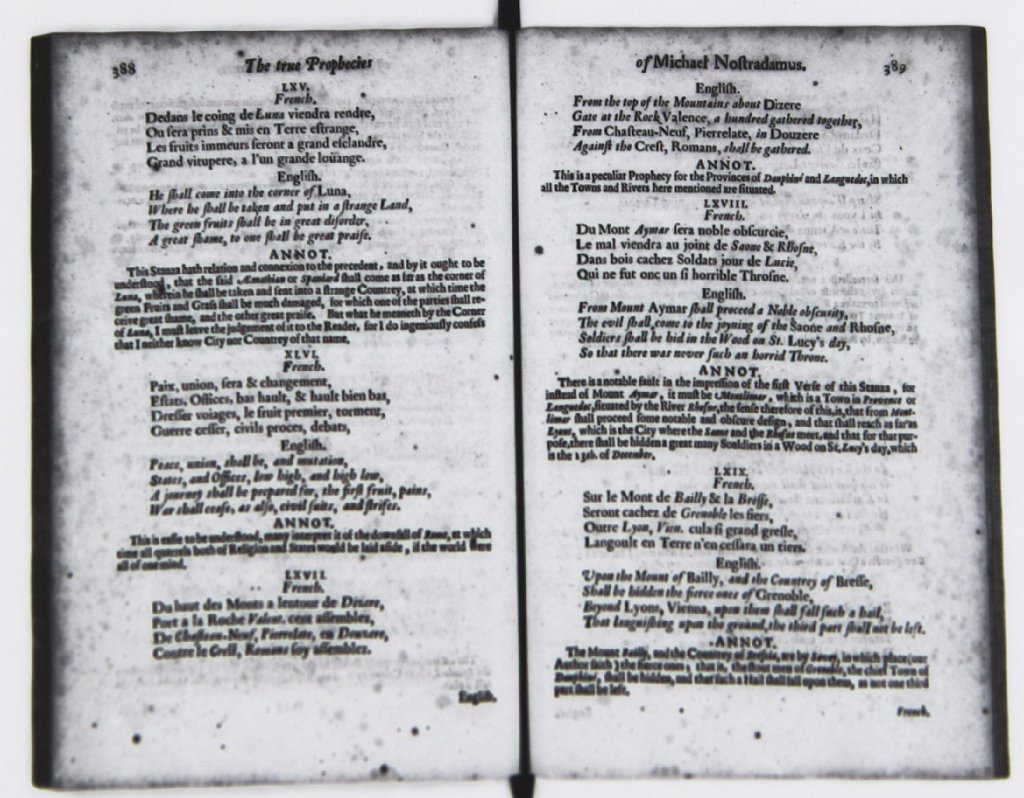 388
The true Prophecies
LXV.
French.
Dedans le coing de Luna viendra rendre,
Ou sera prins & mis en Terre estrange,
Les fruits immeurs seront a grand esclandre,
Grand vitupere, a l'un grande loüange.
English.
He shall come into the corner of Luna,
Where he shall be taken and put in a strange Land,
The green fruits shall be in great disorder,
A great shame, to one shall be great praise.
ANNOT.
This Stanza hath relation and connexion to the precedent, and by it ought to be
understood, that the said Æmathian or Spaniard shall come as far as the corner of
Luna, wherein he shall be taken and sent into a strange Countrey, at which time the
green Fruits and Grass shall be much damaged, for which one of the parties shall re-
ceive great shame, and the other great praise. But what he meaneth by the Corner
of Luna, I must leave the judgement of it to the Reader, for I do ingeniously confess
that I neither know City nor Countrey of that name.
XLVI.
French.
Paix, union, sera & changement,
Estats, Offices, bas hault, & hault bien bas,
Dresser voiages, le fruit premier, torment,
Guerre cesser, civils proces, debats,
English.
Peace, union, shall be, and mutation,
States, and Offices, low high, and high low,
A journey shall be prepared for, the first fruit, pains,
War shall cease, as also, civil suits, and strifes.
ANNOT.
This is easie to be understood, many interpret it of the downfall of Rome, at which
time all quarrels both of Religion and States would be laid aside, if the world were
all of one mind.
LXVII.
French.
Du haut des Monts a lentour de Dizere,
Port a la Roche Valent. cent assemblez,
De Chasteau-Neuf, Pierrelate, en Douzere,
Contre le Crest, Romans foy assemblez.
English.
of Michael Nostradamus.
389
English.
From the top of the Mountains about Dizere
Gate at the Rock Valence, a hundred gathered together,
From Chasteau-Neuf, Pierrelate, in Douzere
Against the Crest, Romans, shall be gathered.
ANNOT.
This is a peculiar Prophecy for the Provinces of Dauphiné and Languedoc, in which
all the Towns and Rivers here mentioned are situated.
LXVIII.
French.
Du Mont Aymar sera noble obscurcie,
Le mal viendra au joint de Saone & Rhosne,
Dans bois cachez Soldats jour de Lucie,
Qui ne fut onc un si horrible Throsne.
English.
From Mount Aymar shall proceed a Noble obscurity,
The evil shall come to the joyning of the Saone and Rhosne,
Soldiers shall be hid in the Wood on St. Lucy's day,
So that there was never such an horrid Throne.
ANNOT.
There is a notable fault in the impression of the first Verse of this Stanza, for
instead of Mount Aymar, it must be Montlimar, which is a Town in Provence or
Languedoc, situated by the River Rhosne, the sense therefore of this, is, that from Mont-
limar shall proceed some notable and obscure design, and that shall reach as far as
Lyons, which is the City where the Saone and the Rhosne meet, and that for that pur-
pose, there shall be hidden a great many Souldiers in a Wood on St. Lucy's day, which
is the 13th. of December.
LXIX.
French.
Sur le Mont de Bailly & la Bresse,
Seront cachez de Grenoble les fiers,
Outre Lyon, Vien. eulx si grand gresle,
Langoult en Terre n'en cessara un tiers.
English.
Upon the Mount of Bailly, and the Countrey of Bresse,
Shall be hidden the fierce ones of Grenoble,
Beyond Lyons, Vienna, upon them shall fall such a hail,
That languishing upon the ground, the third part shall not be left.
ANNOT.
The Mount Bailly, and the Countrey of Bressia, are by Savoy, in which place our
Author saith the fierce ones, that is, the stout men of Grenoble, the chief Town of
Dauphiné, shall be hidden, and that such a Hail shall fall upon them, as not one third
part shall be left.
French.